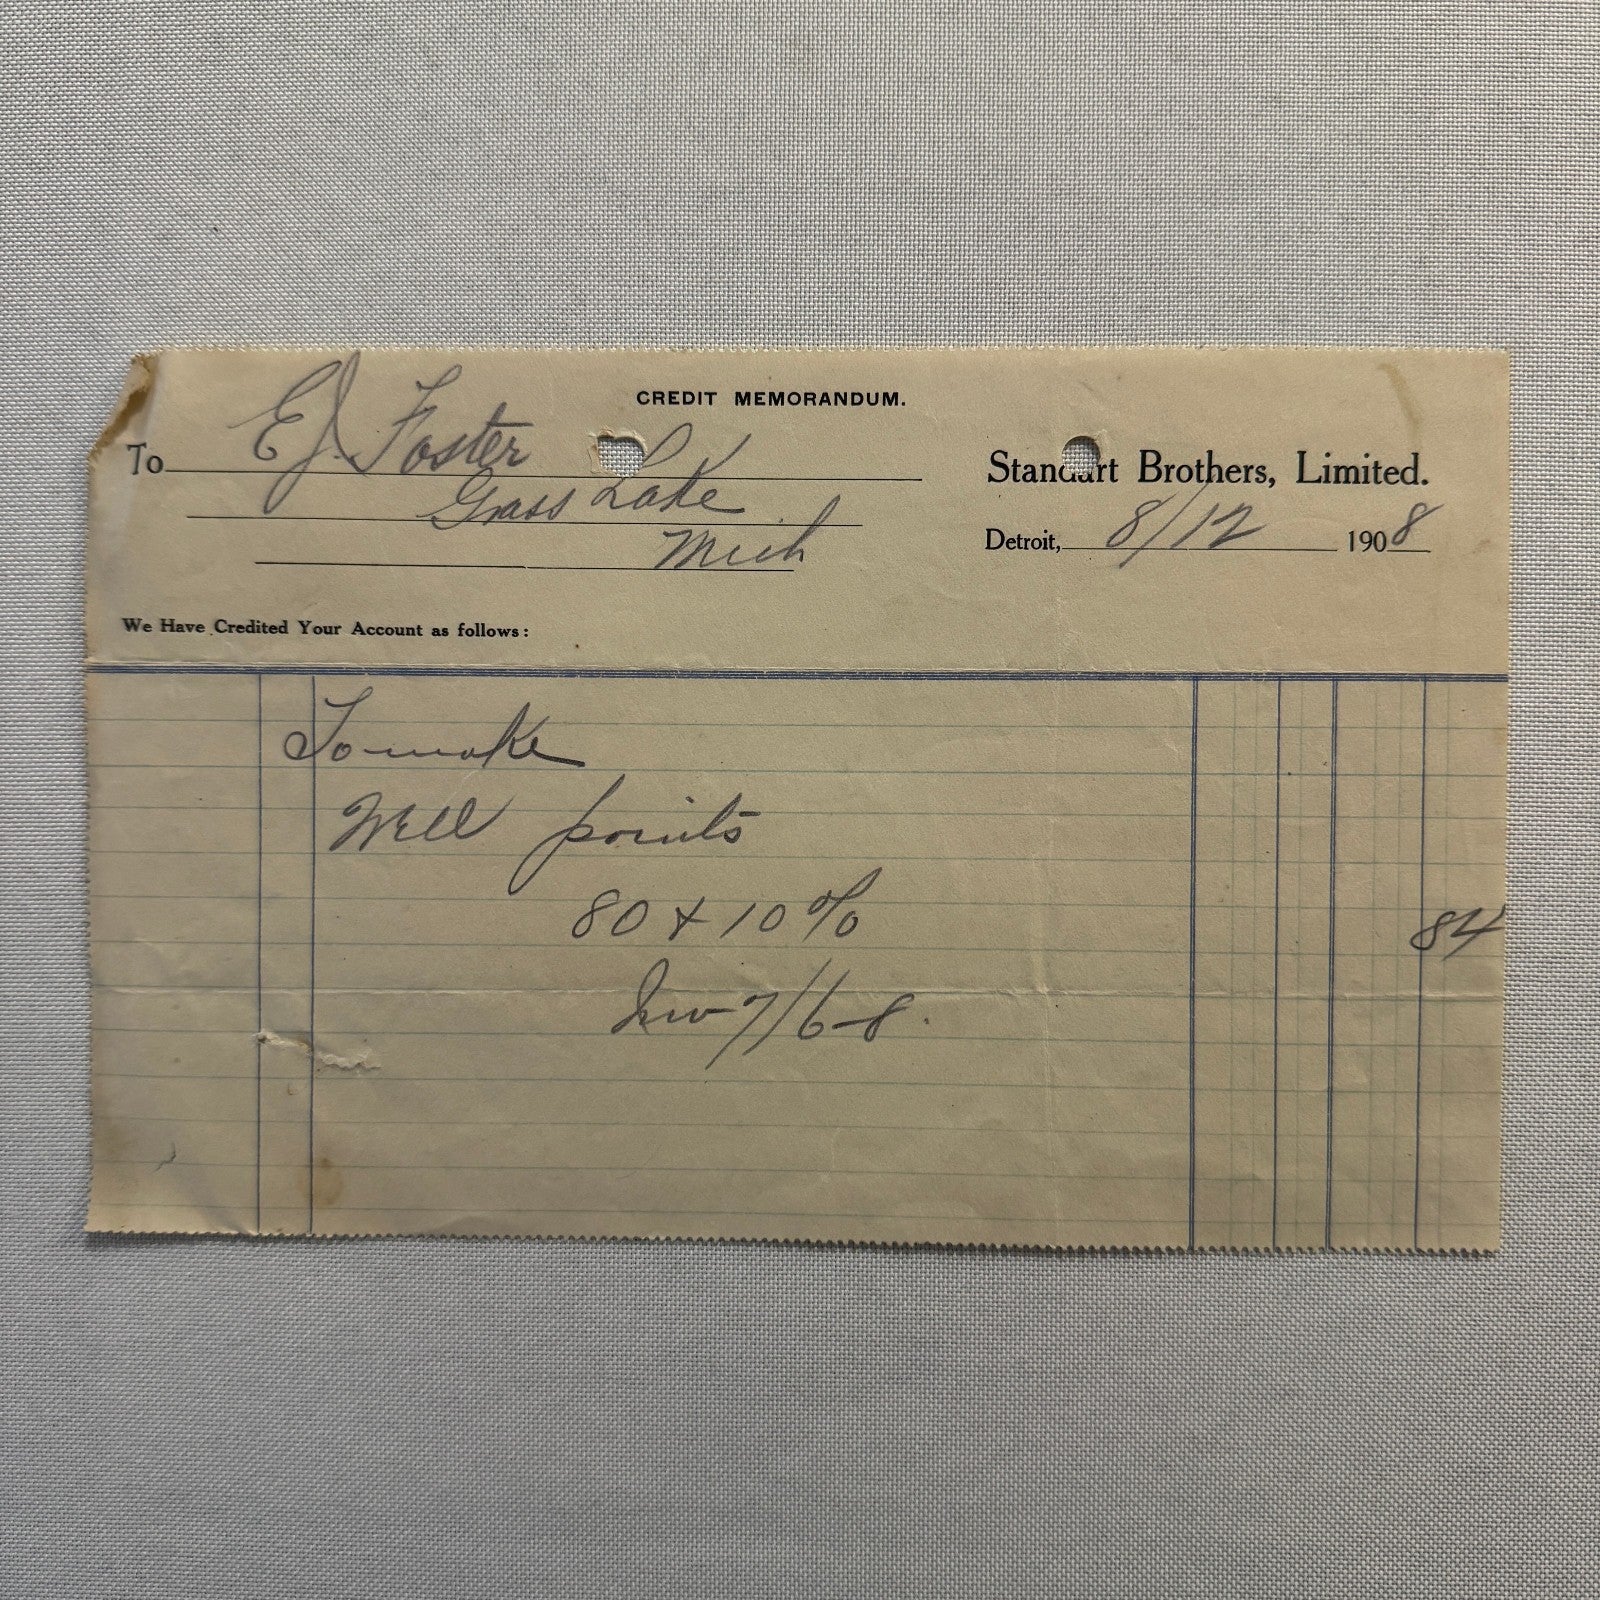 CREDIT MEMORANDUM.
To E J. Foster
Grass Lake
Mich
Standart Brothers, Limited.
Detroit, 8/12 1908
We Have Credited Your Account as follows:
To make
Well points
80 & 10 % 84
Inv 7/6-8.